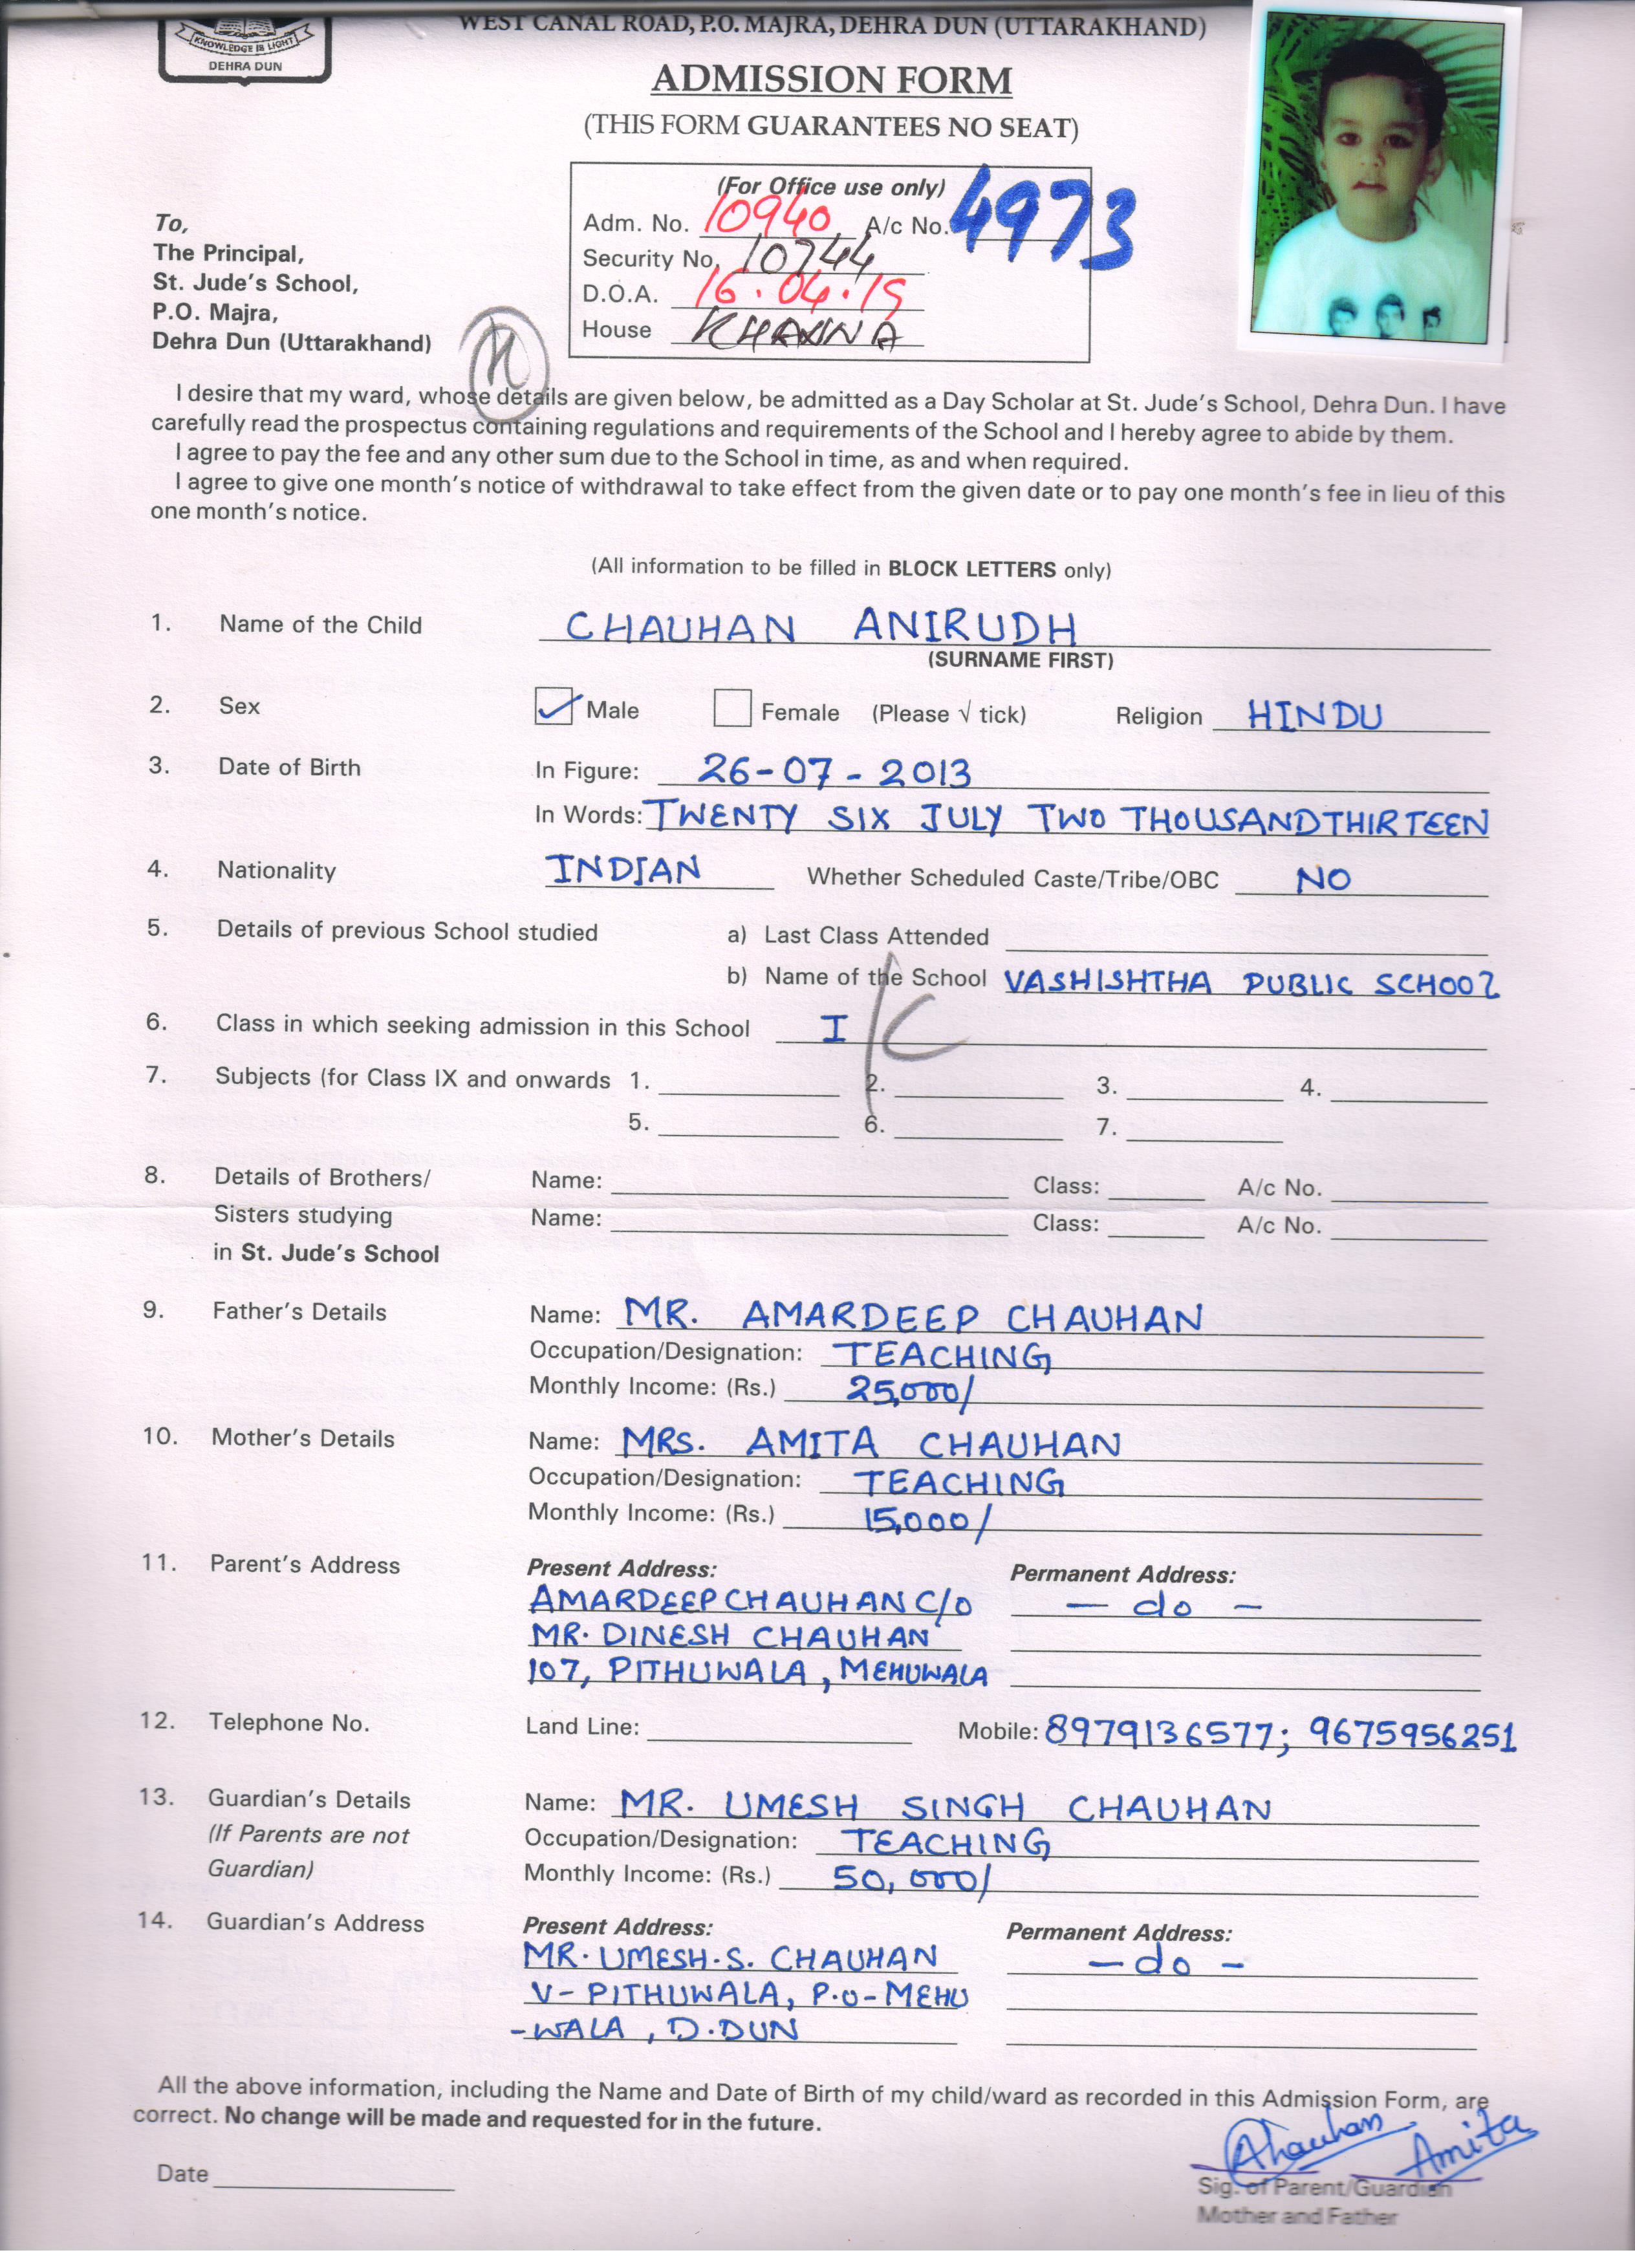 WEST CANAL ROAD, P.O. MAJRA, DEHRA DUN (UTTARAKHAND)
KNOWLEDGE IS LIGHT
DEHRA DUN
ADMISSION FORM
(THIS FORM GUARANTEES NO SEAT)
(For Office use only)
Adm. No. 10940 A/c No. 4973
Security No. 10744
D.O.A. 16.04.19
House KHANNA
To,
The Principal,
St. Jude's School,
P.O. Majra,
Dehra Dun (Uttarakhand)
N
I desire that my ward, whose details are given below, be admitted as a Day Scholar at St. Jude's School, Dehra Dun. I have
carefully read the prospectus containing regulations and requirements of the School and I hereby agree to abide by them.
I agree to pay the fee and any other sum due to the School in time, as and when required.
I agree to give one month's notice of withdrawal to take effect from the given date or to pay one month's fee in lieu of this
one month's notice.
(All information to be filled in BLOCK LETTERS only)
1. Name of the Child CHAUHAN ANIRUDH
(SURNAME FIRST)
2. Sex Male Female (Please √ tick) Religion HINDU
3. Date of Birth In Figure: 26-07-2013
In Words: TWENTY SIX JULY TWO THOUSAND THIRTEEN
4. Nationality INDIAN Whether Scheduled Caste/Tribe/OBC NO
5. Details of previous School studied a) Last Class Attended
b) Name of the School VASHISHTHA PUBLIC SCHOOL
6. Class in which seeking admission in this School I K
7. Subjects (for Class IX and onwards 1. 2. 3. 4.
5. 6. 7.
8. Details of Brothers/ Name: Class: A/c No.
Sisters studying Name: Class: A/c No.
in St. Jude's School
9. Father's Details Name: MR. AMARDEEP CHAUHAN
Occupation/Designation: TEACHING
Monthly Income: (Rs.) 25,000/
10. Mother's Details Name: MRS. AMITA CHAUHAN
Occupation/Designation: TEACHING
Monthly Income: (Rs.) 15,000/
11. Parent's Address Present Address: Permanent Address:
AMARDEEP CHAUHAN C/O - do -
MR. DINESH CHAUHAN
107, PITHUWALA, MEHUWALA
12. Telephone No. Land Line: Mobile: 8979136577; 9675956251
13. Guardian's Details Name: MR. UMESH SINGH CHAUHAN
(If Parents are not Occupation/Designation: TEACHING
Guardian) Monthly Income: (Rs.) 50,000/
14. Guardian's Address Present Address: Permanent Address:
MR. UMESH.S. CHAUHAN - do -
V- PITHUWALA, P.O-MEHU
-WALA, D.DUN
All the above information, including the Name and Date of Birth of my child/ward as recorded in this Admission Form, are
correct. No change will be made and requested for in the future.
AChauhan Amita
Date
Sig. of Parent/Guardian
Mother and Father